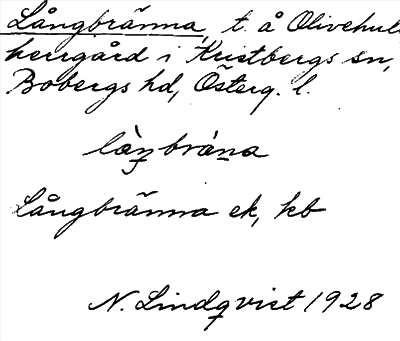 Långbränna, t. å Olivehult
herrgård i Kristbergs sn,
Bobergs hd, Österg. l.
lån̡bräna
Långbränna ek, kb
N. Lindqvist 1928